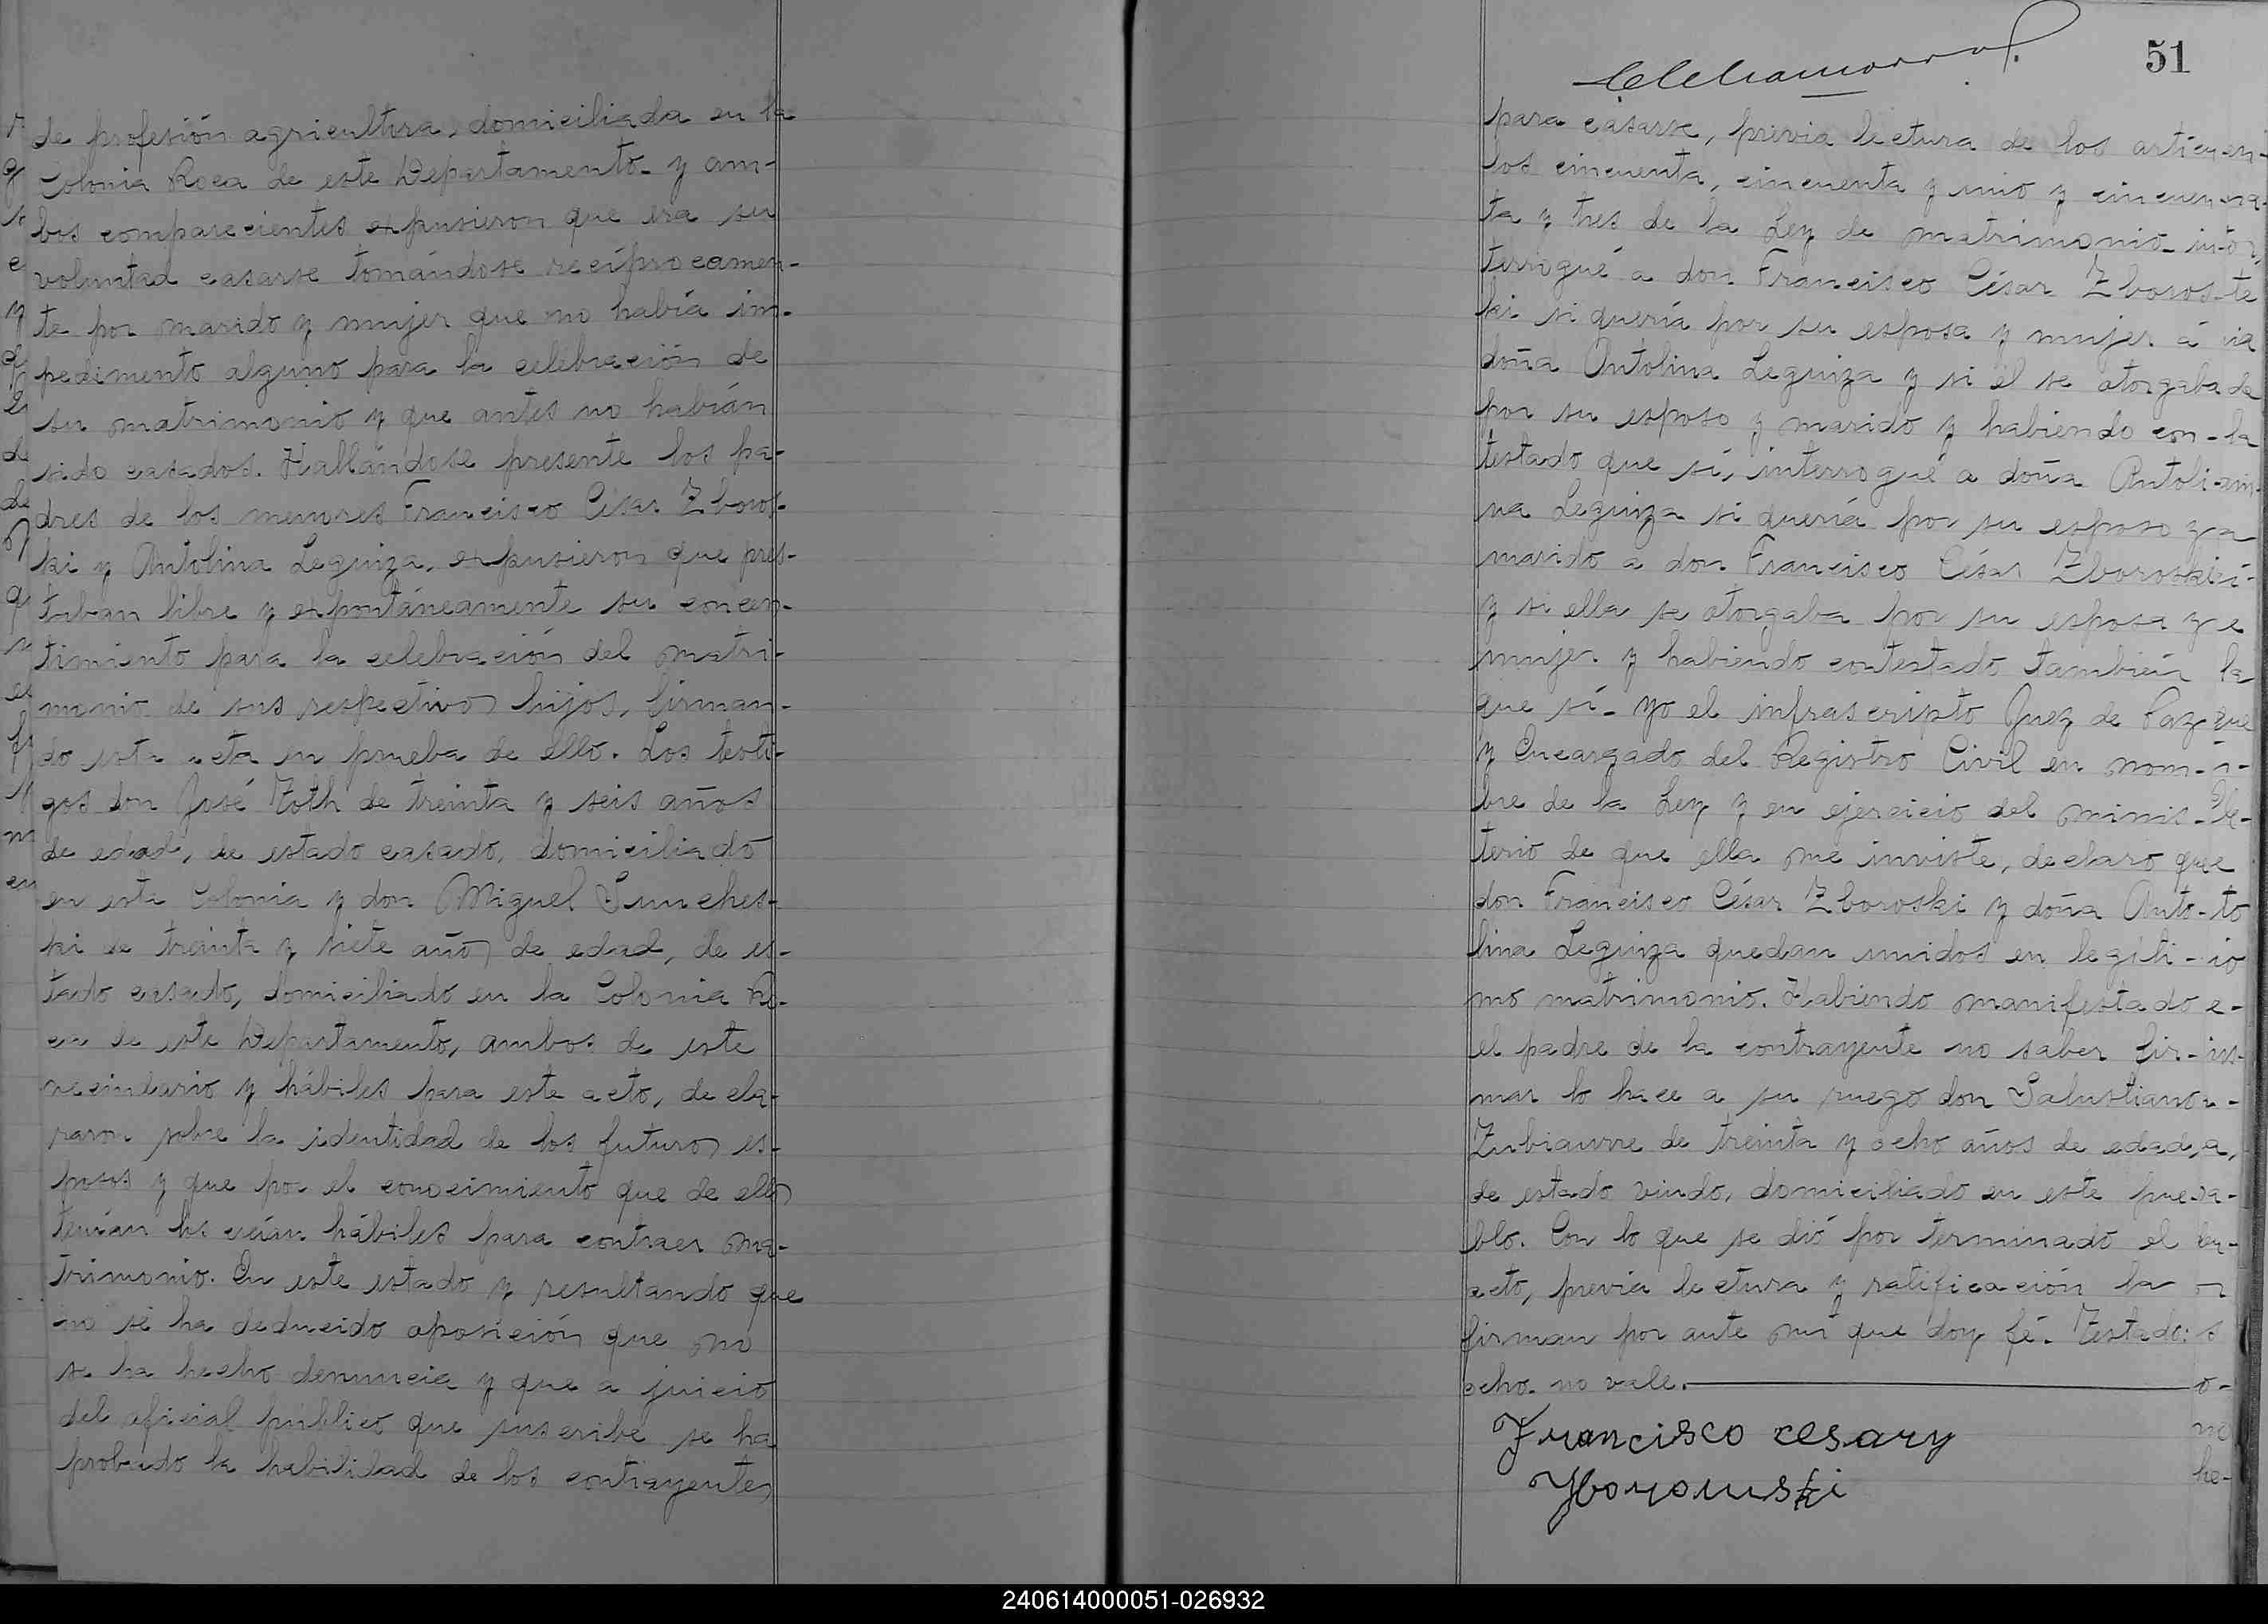 de profesión agricultura, domiciliada en la
Colonia Roca de este Departamento_ y am-
bos comparecientes expusieron que era su
voluntad casarse tomándose recíprocamen-
te por marido y mujer que no había im-
pedimento alguno para la celebración de
su matrimonio y que antes no habían
sido casados. Hallándose presente los pa-
dres de los menores Francisco César Zboros-
ki y Antolina Leguiza, expusieron que pres-
taban libre y expontáneamente su concen-
timiento para la celebración del matri-
monio de sus respectivos hijos, firman-
do esta acta en prueba de ello. Los testi-
gos don José Toth de treinta y seis años
de edad, de estado casado, domiciliado
en esta Colonia y don Miguel Sunches-
ki de treinta y siete años de edad, de es-
tado casado, domiciliado en la Colonia Ro-
ca de este Departamento, ambos de este
vecindario y hábiles para este acto, decla-
raron sobre la identidad de los futuros es-
posos y que por el conocimiento que de ellos
tenían los creían hábiles para contraer ma-
trimonio. En este estado y resultando que
no se ha deducido oposición que no
se ha hecho denuncia y que a juicio
del oficial público que suscribe se ha
probado la habilidad de los contrayentes
51
para casarse, previa lectura de los artícu-
los cincuenta, cincuenta y uno y cincuen-
ta y tres de la Ley de matrimonio_ in-
terrogué a don Francisco César Zboros-
ki si quería por su esposa y mujer á
doña Antolina Leguiza y si él se otorgaba
por su esposo y marido y habiendo con-
testado que sí, interrogué a doña Antoli-
na Leguiza si quería por su esposo y
marido a don Francisco César Zboroski
y si ella se otorgaba por su esposa y
mujer y habiendo contestado también
que sí_ yo el infrascripto Juez de Paz
y Encargado del Registro Civil en nom-
bre de la Ley y en ejercicio del minis-
terio de que ella me inviste, declaro que
don Francisco César Zboroski y doña Anto-
lina Leguiza quedan unidos en legíti-
mo matrimonio. Habiendo manifestado
el padre de la contrayente no saber fir-
mar lo hace a su ruego don Salustiano
Zubiaurre de treinta y ocho años de edad,
de estado viudo, domiciliado en este pue-
blo. Con lo que se dió por terminado el
acto, previa lectura y ratificación la
firman por ante mí que doy fé_ Testado:
ocho no vale.
Francisco cesary
Zborowski
240614000051-026932